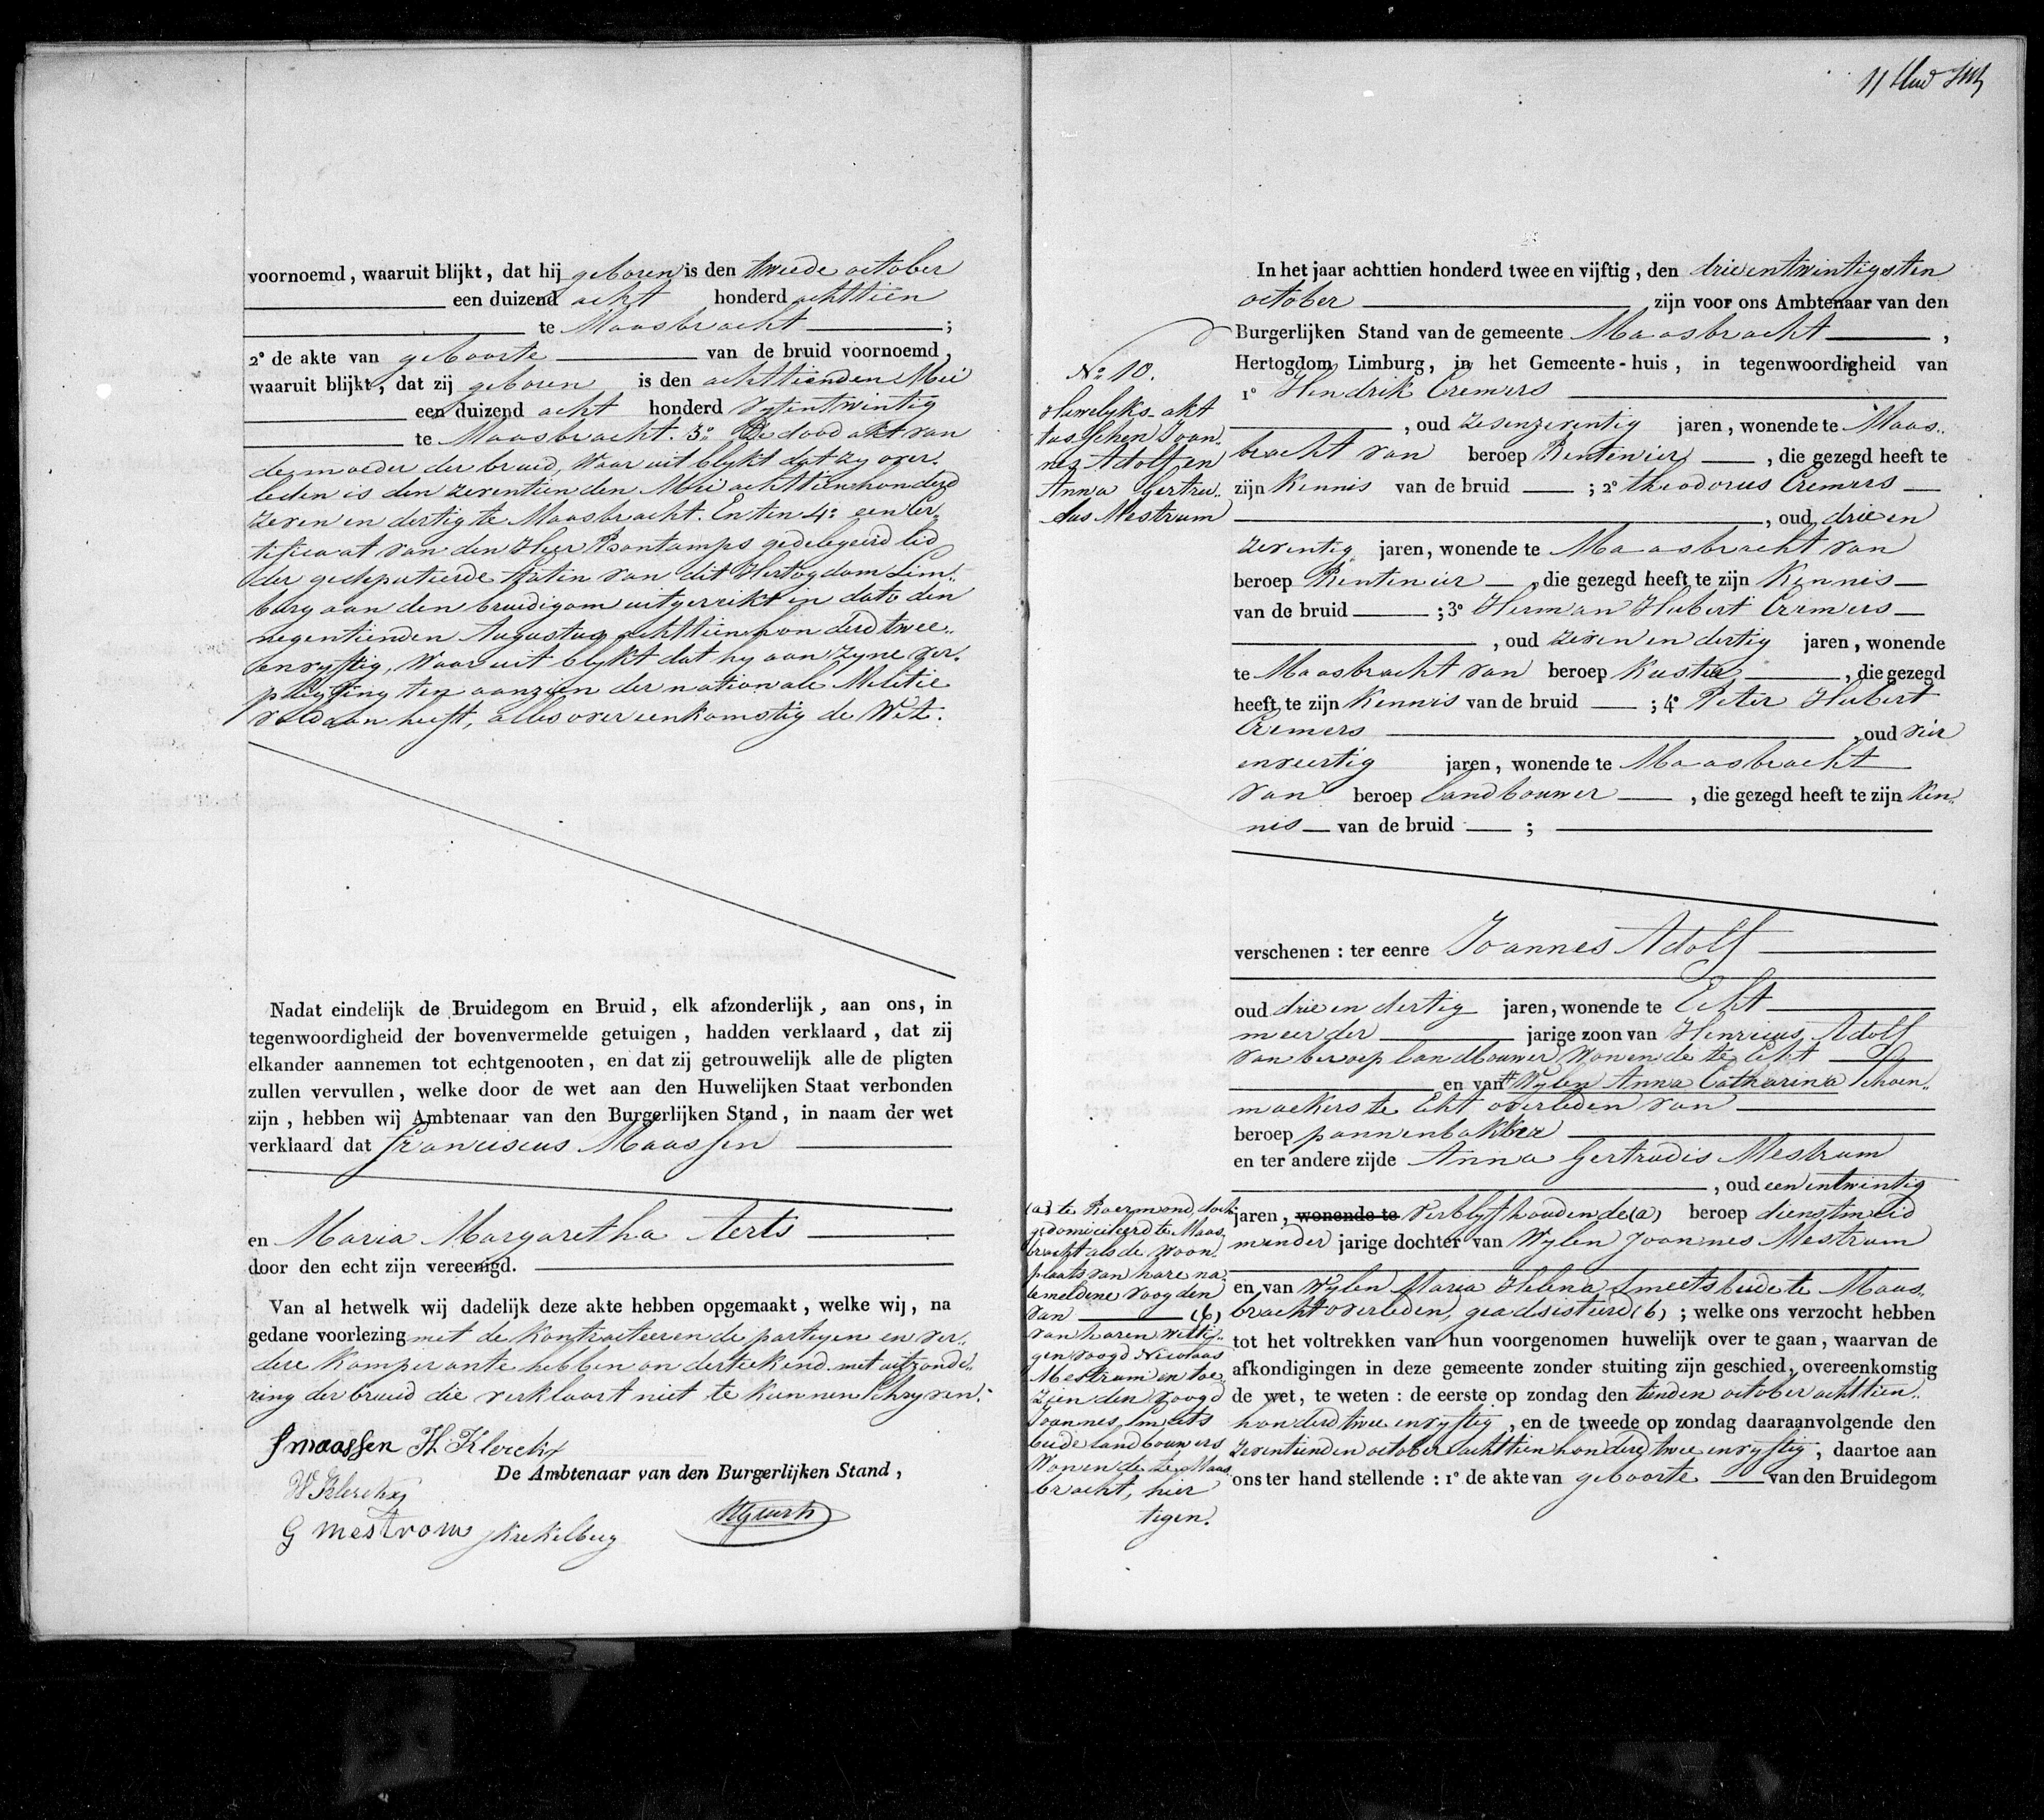 voornoemd, waaruit blijkt, dat hij geboren is den tweede october
een duizend acht honderd achttien
te Maasbracht ;
2° de akte van geboorte van de bruid voornoemd,
waaruit blijkt, dat zij geboren is den achttienden Mei
een duizend acht honderd vyfentwintig
te Maasbracht. 3° De dood akt van
de moeder der bruid, waar uit blykt dat zy over.
leden is den zeventienden Mei achttienhonderd
zeven en dertig te Maasbracht. En ten 4° een cer„
tificaat van den Heer Bontamps gedelegeerd lid
der gedeputeerde staten van dit Hertogdom Lim„
burg aan den bruidigom uitgereikt in dato den
negentienden Augustus achttienhonderd twee„
envyftig, waar uit blykt dat hy aan zyne ver.
pligting ten aanzien der nationale Militie
voldaan heeft, alles overeenkomstig de Wet.
Nadat eindelijk de Bruidegom en Bruid, elk afzonderlijk, aan ons, in
tegenwoordigheid der bovenvermelde getuigen, hadden verklaard, dat zij
elkander aannemen tot echtgenooten, en dat zij getrouwelijk alle de pligten
zullen vervullen, welke door de wet aan den Huwelijken Staat verbonden
zijn, hebben wij Ambtenaar van den Burgerlijken Stand, in naam der wet
verklaard dat Franciscus Maassen
en Maria Margaretha Aerts
door den echt zijn vereenigd.
Van al hetwelk wij dadelijk deze akte hebben opgemaakt, welke wij, na
gedane voorlezing met de kontracteerende partyen en ver„
dere komparante hebben onderteekend met uitzonde„
ring der bruid die verklaart niet te kunnen schryven.
f maassen H. Klerckx
De Ambtenaar van den Burgerlijken Stand,
W Klerckx
G mestrom J Krekelberg
11
In het jaar achttien honderd twee en vijftig, den drieentwintigsten
october zijn voor ons Ambtenaar van den
Burgerlijken Stand van de gemeente Maasbracht ,
Hertogdom Limburg, in het Gemeente-huis, in tegenwoordigheid van
1° Hendrik Cremers
, oud zesenzeventig jaren, wonende te Maas„
bracht van beroep Rentenier , die gezegd heeft te
zijn Kennis van de bruid ; 2° Theodorus Cremers
, oud drie en
zeventig jaren, wonende te Maasbracht van
beroep Rentenier , die gezegd heeft te zijn Kennis
van de bruid ; 3° Herman Hubert Cremers
, oud zeven en dertig jaren, wonende
te Maasbracht van beroep Kuster , die gezegd
heeft te zijn Kennis van de bruid ; 4° Peter Hubert
Cremers , oud vier
enveertig jaren, wonende te Maasbracht
van beroep landbouwer , die gezegd heeft te zijn Ken„
nis van de bruid ;
N° 10.
Huwelyks-akt
tusschen Joan„
nes Adolf en
Anna Gertru„
dus Mestrum
verschenen : ter eenre Joannes Adolf
oud drie en dertig jaren, wonende te Echt
meerder jarige zoon van Henricus Adolf
van beroep landbouwer wonende te Echt
en van Wylen Anna Catharina Schoen„
maekers te Echt overleden van
beroep pannenbakker
en ter andere zijde Anna Gertrudis Mestrum
, oud eenentwintig
jaren, wonende te verblyfhoudende (a) beroep dienstmeid
minder jarige dochter van Wylen Joannes Mestrum
en van Wylen Maria Helena Smeets beide te Maas„
bracht overleden, geadsisteerd (b) ; welke ons verzocht hebben
tot het voltrekken van hun voorgenomen huwelijk over te gaan, waarvan de
afkondigingen in deze gemeente zonder stuiting zijn geschied, overeenkomstig
de wet, te weten : de eerste op zondag den tienden october achttien„
honderd twee envyftig, en de tweede op zondag daaraanvolgende den
zeventienden october achttienhonderd twee envyftig, daartoe aan
ons ter hand stellende : 1° de akte van geboorte van den Bruidegom
(a) te Roermond, doch
gedomicilieerd te Maas„
bracht als de woon„
plaats van hare na„
temeldene voogden
van (b)
van haren wetti„
gen voogd Nicolaas
Mestrum en toe„
zienden voogd
Joannes Smeets
beide landbouwers
wonende te Maas„
bracht, hier
tegen.